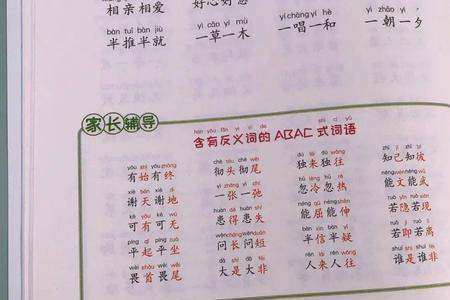 相亲相爱 好心好意
yì cǎo yí mù yí chàng yí hè yì zhāo yì
bàn tuī bàn jiù
半推半就 一草一木 一唱一和 一朝一夕
家长辅导
hán yǒu fǎn yì cí de shì cí yǔ
含有反义词的 ABAC 式词语
yǒu shǐ yǒu zhōng chè tóu chè wěi dú lái dú wǎng zhī jǐ zhī bǐ
有始有终 彻头彻尾 独来独往 知己知彼
xiè tiān xiè dì yì zhāng yì chí hū lěng hū rè néng wén néng wǔ
谢天谢地 一张一弛 忽冷忽热 能文能武
kě yǒu kě wú huàn dé huàn shī néng qū néng shēn ruò yǐn ruò xiàn
可有可无 患得患失 能屈能伸 若隐若现
píng qǐ píng zuò wèn cháng wèn duǎn bàn xìn bàn yí ruò jí ruò lí
平起平坐 问长问短 半信半疑 若即若离
wèi shǒu wèi wěi dà shì dà fēi rén lái rén wǎng shuí shì shuí fēi
畏首畏尾 大是大非 人来人往 谁是谁非